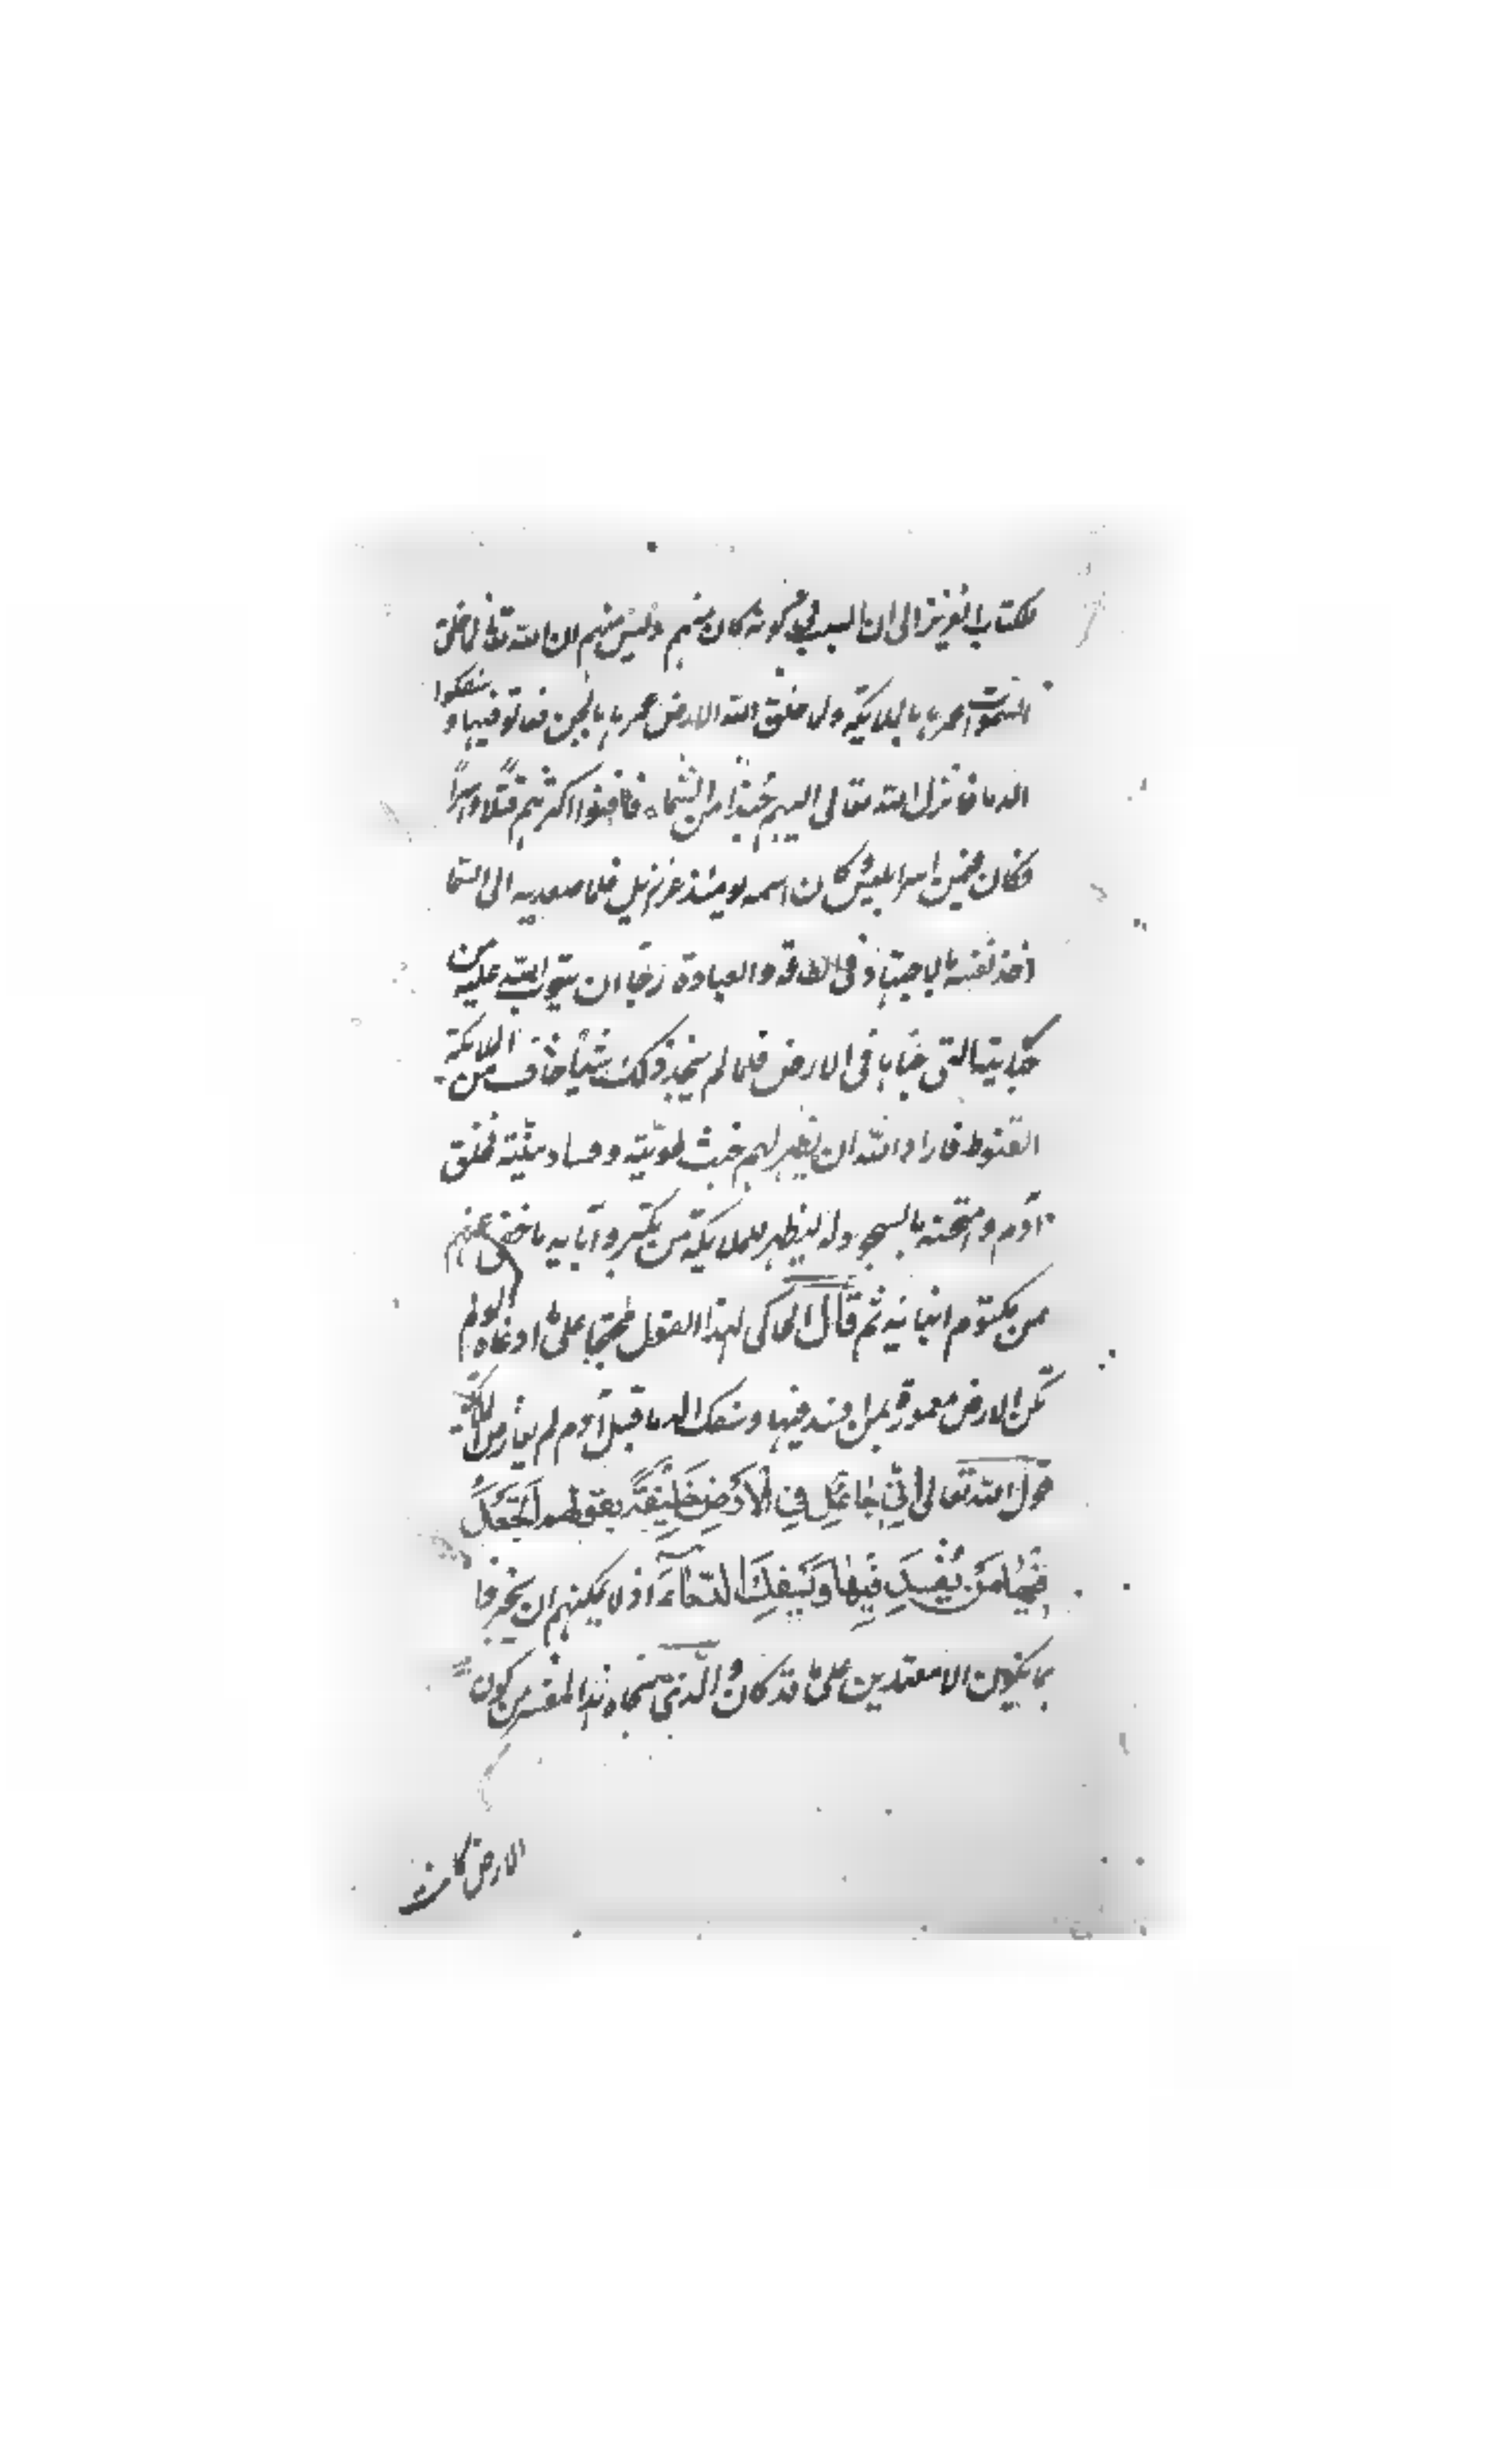 لكتاب العزيز الى ان السبب في كونه كان منهم وليس منهم ان الله تعالى لما خلق
السموات عمرها بالملايكة ولما خلق الله الارض عمرها بالجن فعاثو فيها و سفكوا
الدما فانزل الله تعالى اليهم جندًا من السماء فافنوا اكثرهم قتلًا واسرًا
فكان فيمن اسر ابليس وكان اسمه يوميذ عزازيل فلما صعد به الى السما
اخذ نفسه بالاجتهاد في الطاعة والعبادة رجا ان يتوب الله عليه من
جنايته التي جناها في الارض فلما لم يجد ذلك شيأ خاف من الملايكة
القنوط فاراد الله ان يظهر لهم خبث طويته وفساد نيته فخلق
آدم وامتحنه بالسجود له ليظهر للملايكة من تكبره وآبايه ما خفى عنهم
من مكتوم انبايه ثم قال الحاكى لهذا القول محتجا على ادعاه لو لم
تكن الارض معمورة بمن افسد فيها وسفك الدما قبل آدم لم يعارض الملايكة
قول الله تعالى اِنّي جَاعِل فِي الْاَرْضِ خَلِيْفَةً بقولهم اَتَجْعَلُ
فِيْهَا مَنْ يُفْسِدَ فِيْهَا وَيَسْفِكَ الدِّمَآءَ اذ لا يمكنهم ان يخبر
بما يكون الا معتمدين على ما قد كان والذي نحاه هذا المفسر من كون
الارض كانت